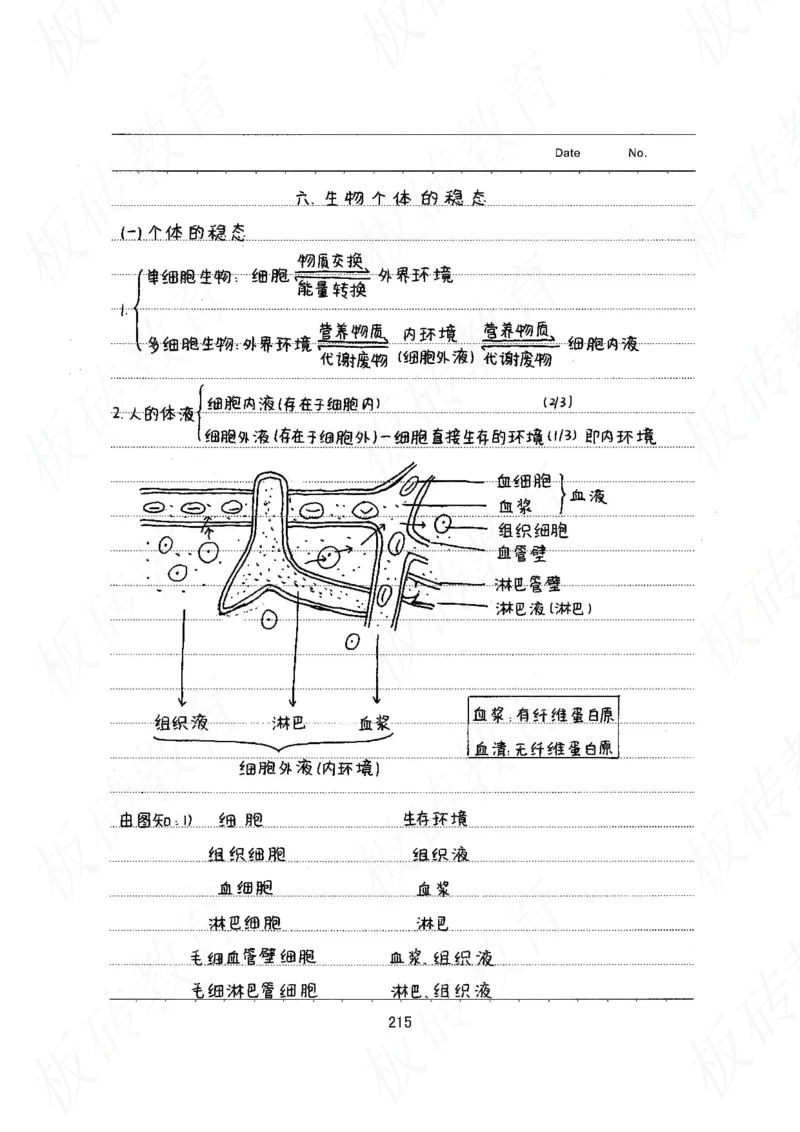 Date No.
六.生物个体的稳态
(一)个体的稳态
1.
单细胞生物: 细胞 物质交换 能量转换 外界环境
多细胞生物:外界环境 营养物质 代谢废物 内环境 (细胞外液) 营养物质 代谢废物 细胞内液
2.人的体液
细胞内液(存在于细胞内) (2/3)
细胞外液(存在于细胞外)—细胞直接生存的环境(1/3) 即内环境
血细胞
血浆
血液
组织细胞
血管壁
淋巴管壁
淋巴液(淋巴)
组织液 淋巴 血浆
细胞外液(内环境)
血浆:有纤维蛋白原
血清:无纤维蛋白原
由图知:1) 细胞 生存环境
组织细胞 组织液
血细胞 血浆
淋巴细胞 淋巴
毛细血管壁细胞 血浆、组织液
毛细淋巴管细胞 淋巴、组织液
215
板砖教育